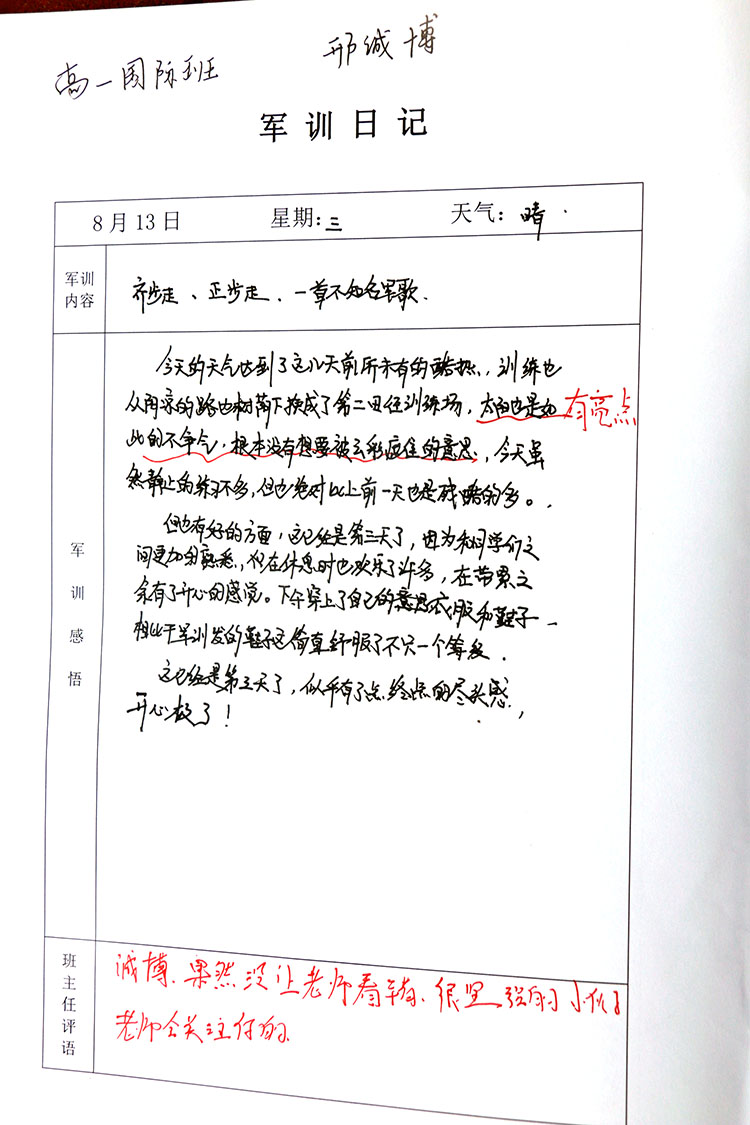 高一国际班 邢诚博
军训日记
8月13日 星期:三 天气:晴.
军训内容
齐步走、正步走、一章不知名军歌.
军训感悟
今天的天气达到了这几天前所未有的酷热,训练也
从阴凉的路边树荫下换成了第二田径训练场,太阳也是如
有亮点
此的不争气,根本没有想要被云彩遮住的意思,今天虽
然静止的练习不多,但也绝对比上前一天也是残酷的多。
但也有好的方面,这已经是第三天了,因为和同学们之
间更加的熟悉,但在休息时也欢乐了许多,在劳累之
余有了开心的感觉。下午穿上了自己的衣服和鞋子
相比于军训发的鞋子这简直舒服了不只一个等级.
这已经是第三天了,似乎有了点终点的尽头感,
开心极了!
班主任评语
诚博、果然没让老师看、很坚强的小伙子
老师会关注你的